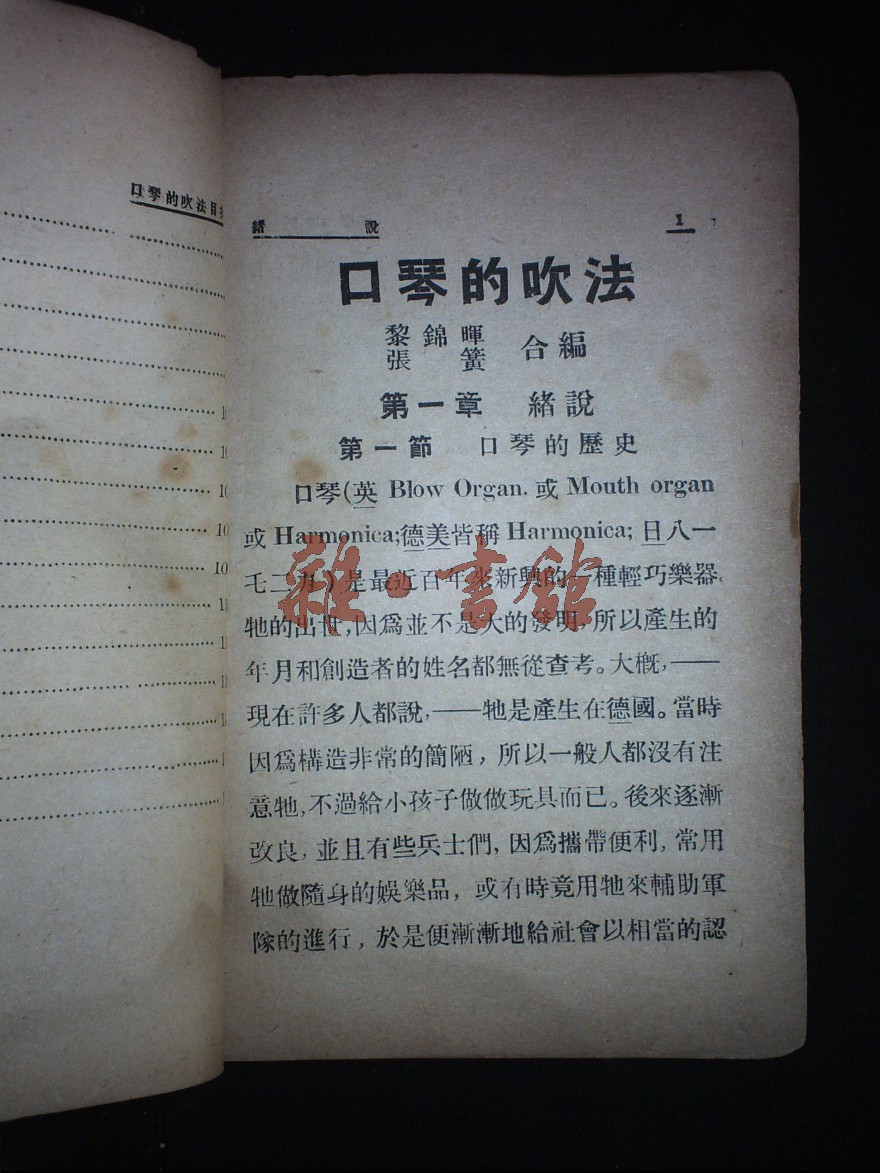 口琴的吹法目
10
10
緒說 1
口琴的吹法
黎錦暉
張簧 合編
第一章 緒說
第一節 口琴的歷史
口琴(英 Blow Organ. 或 Mouth organ
或 Harmonica;德美皆稱 Harmonica; 日八一
乇二カ)是最近百年來新興的一種輕巧樂器
牠的出世,因爲並不是大的發明,所以產生的
年月和創造者的姓名都無從查考。大概,——
現在許多人都說,——牠是產生在德國。當時
因爲構造非常的簡陋,所以一般人都沒有注
意牠,不過給小孩子做做玩具而已。後來逐漸
改良,並且有些兵士們,因爲攜帶便利,常用
牠做隨身的娛樂品,或有時竟用牠來輔助軍
隊的進行,於是便漸漸地給社會以相當的認
雜·書館